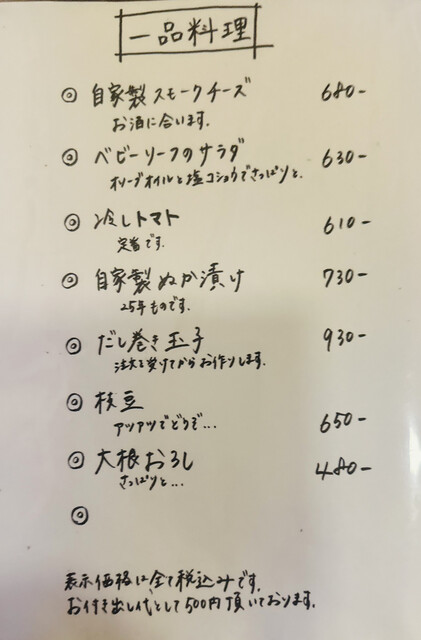 一品料理
◎ 自家製スモークチーズ 680-
お酒に合います。
◎ ベビーリーフのサラダ 630-
オリーブオイルと塩コショウでさっぱりと。
◎ 冷しトマト 610-
定番です。
◎ 自家製ぬか漬け 730-
25年ものです。
◎ だし巻き玉子 930-
注文を受けてからお作りします。
◎ 枝豆 650-
アツアツでどうぞ...
◎ 大根おろし 480-
さっぱりと...
◎
表示価格は全て税込みです。
お付き出し代として500円頂いております。